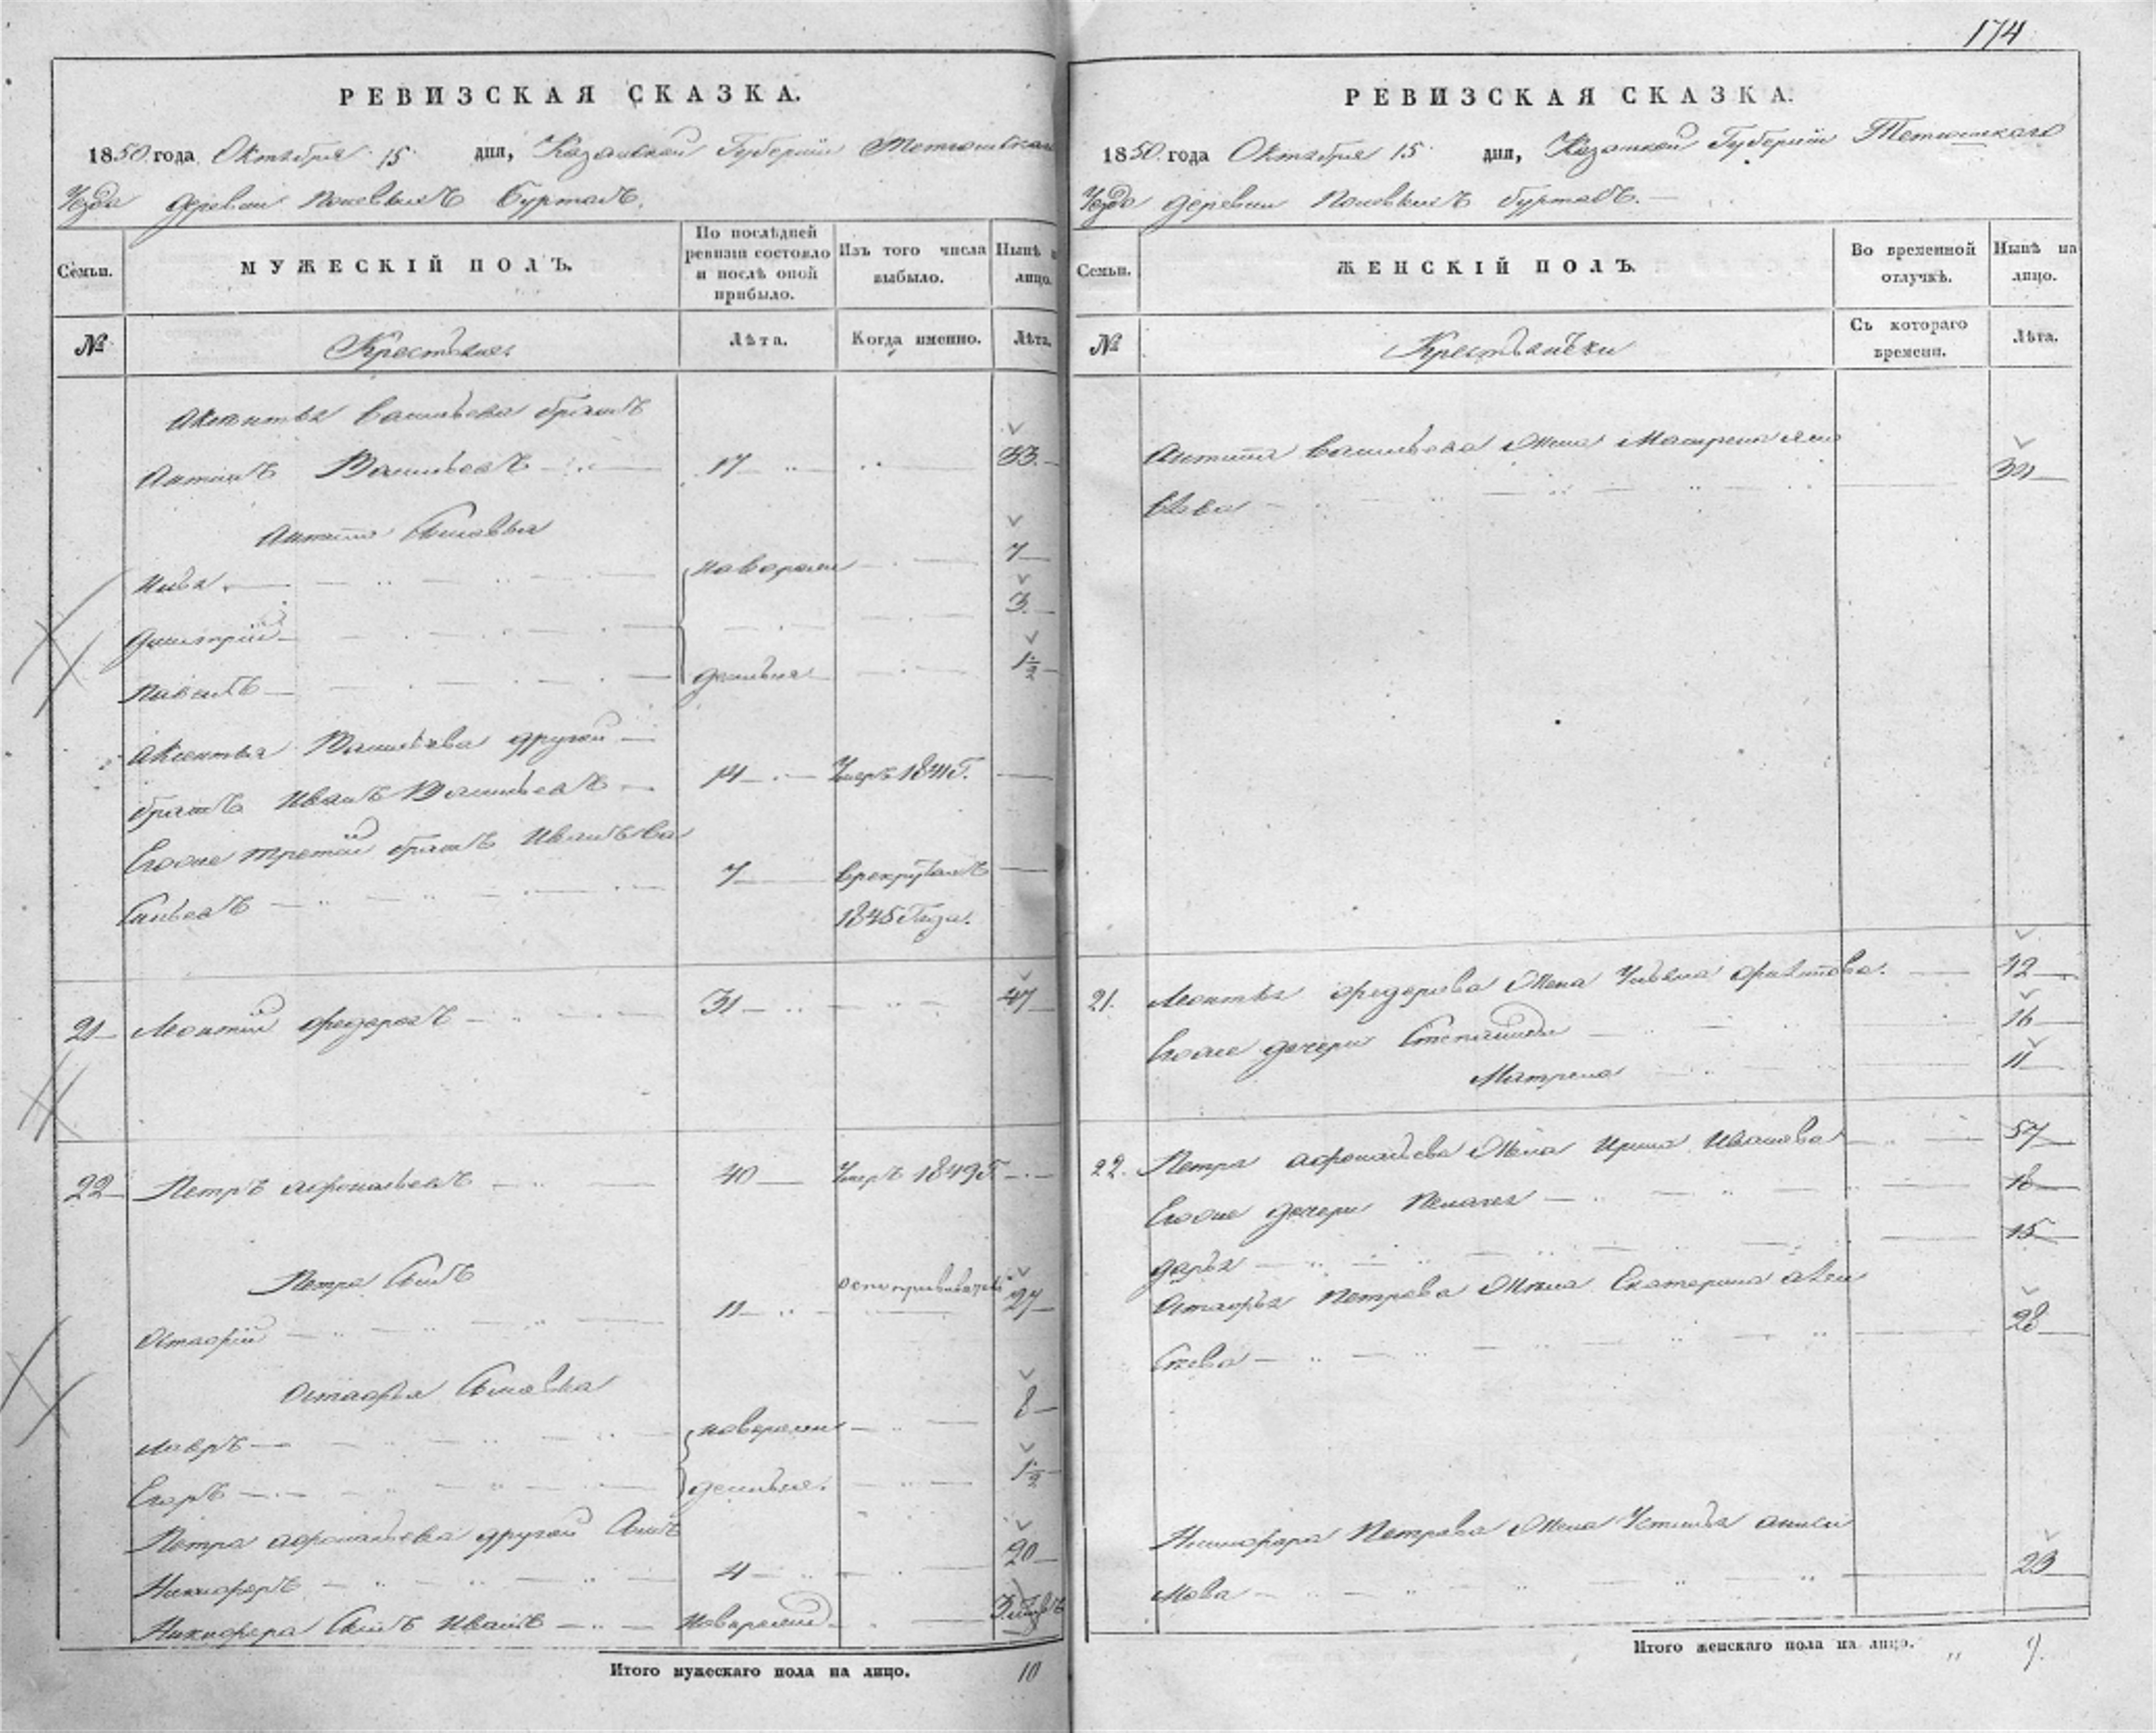 174
РЕВИЗСКАЯ СКАЗКА.
1850 года Октября 15 дня, Казанской Губернии Тетюшскаго
Уезда деревни Буртасъ.
Семьи. МУЖЕСКІЙ ПОЛЪ. По послѣдней ревизіи состояло и послѣ оной прибыло. Изъ того числа выбыло. Нынѣ на лицо.
№ Крестьяне Лѣта. Когда именно. Лѣта.
Аксентья Васильева братъ
Антипъ Васильевъ 17 33
Антипа Сыновья
новорожден 7
Дмитрій 3
Павелъ 1½
Аксентья Васильева другой
братъ Иванъ Васильевъ 14 Умеръ 1841 Г.
Егоже третій братъ Иванъ Ва
сильевъ 7 Врекрутахъ
1845 Года.
21 Леонтій Федоровъ 31 47
22 Петръ Афонасьевъ 40 Умеръ 1849 Г.
Петра Сынъ
Остафій 11 оспопрививатель 27
Остафья Сыновья
Лавръ новорожден 8
Егоръ 1½
Петра Афонасьева другой Сынъ
Никифоръ 4 20
Никифора Сынъ Иванъ Новорожден
Итого мужескаго пола на лицо. 10
РЕВИЗСКАЯ СКАЗКА.
1850 года Октября 15 дня, Казанской Губернии Тетюшскаго
Уезда деревни Буртасъ.
Семьи. ЖЕНСКІЙ ПОЛЪ. Во временной отлучкѣ. Нынѣ на лицо.
№ Крестьянки Съ котораго времени. Лѣта.
Антипа Васильева Жена Матрена
21. Леонтья Федорова Жена Ульяна 42
Егоже дочери Степанида 16
Матрена 11
22. Петра Афонасьева Жена Ирина Иванова 57
Егоже дочери Пелагея 18
Дарья 15
Остафья Петрова Жена Екатерина Алек
сѣева 28
Никифора Петрова Жена Устинья
23
Итого женскаго пола на лицо. 9.